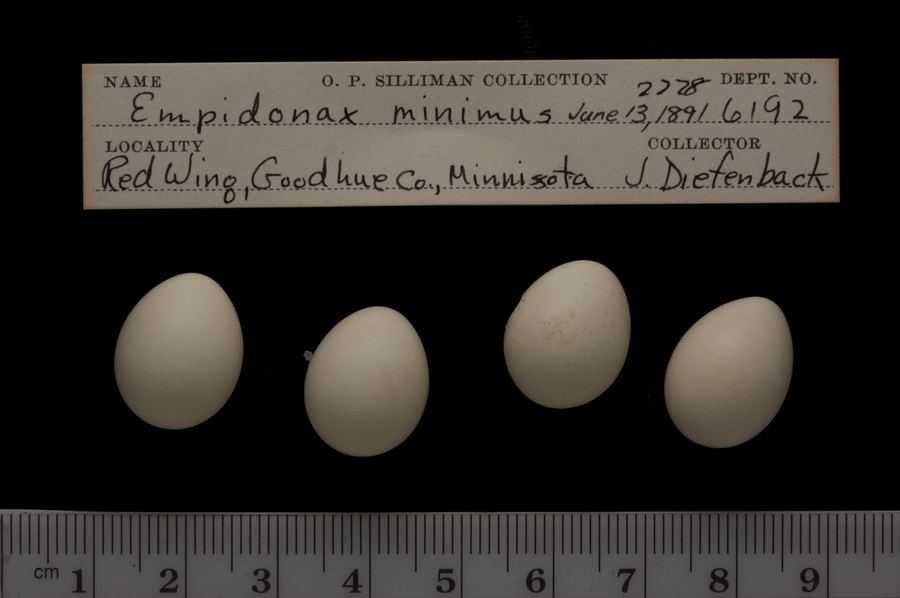 NAME O. P. SILLIMAN COLLECTION 2228 DEPT. NO.
Empidonax minimus June 13, 1891 6192
LOCALITY COLLECTOR
Red Wing, Goodhue Co., Minnisota J. Diefenback
cm 1 2 3 4 5 6 7 8 9